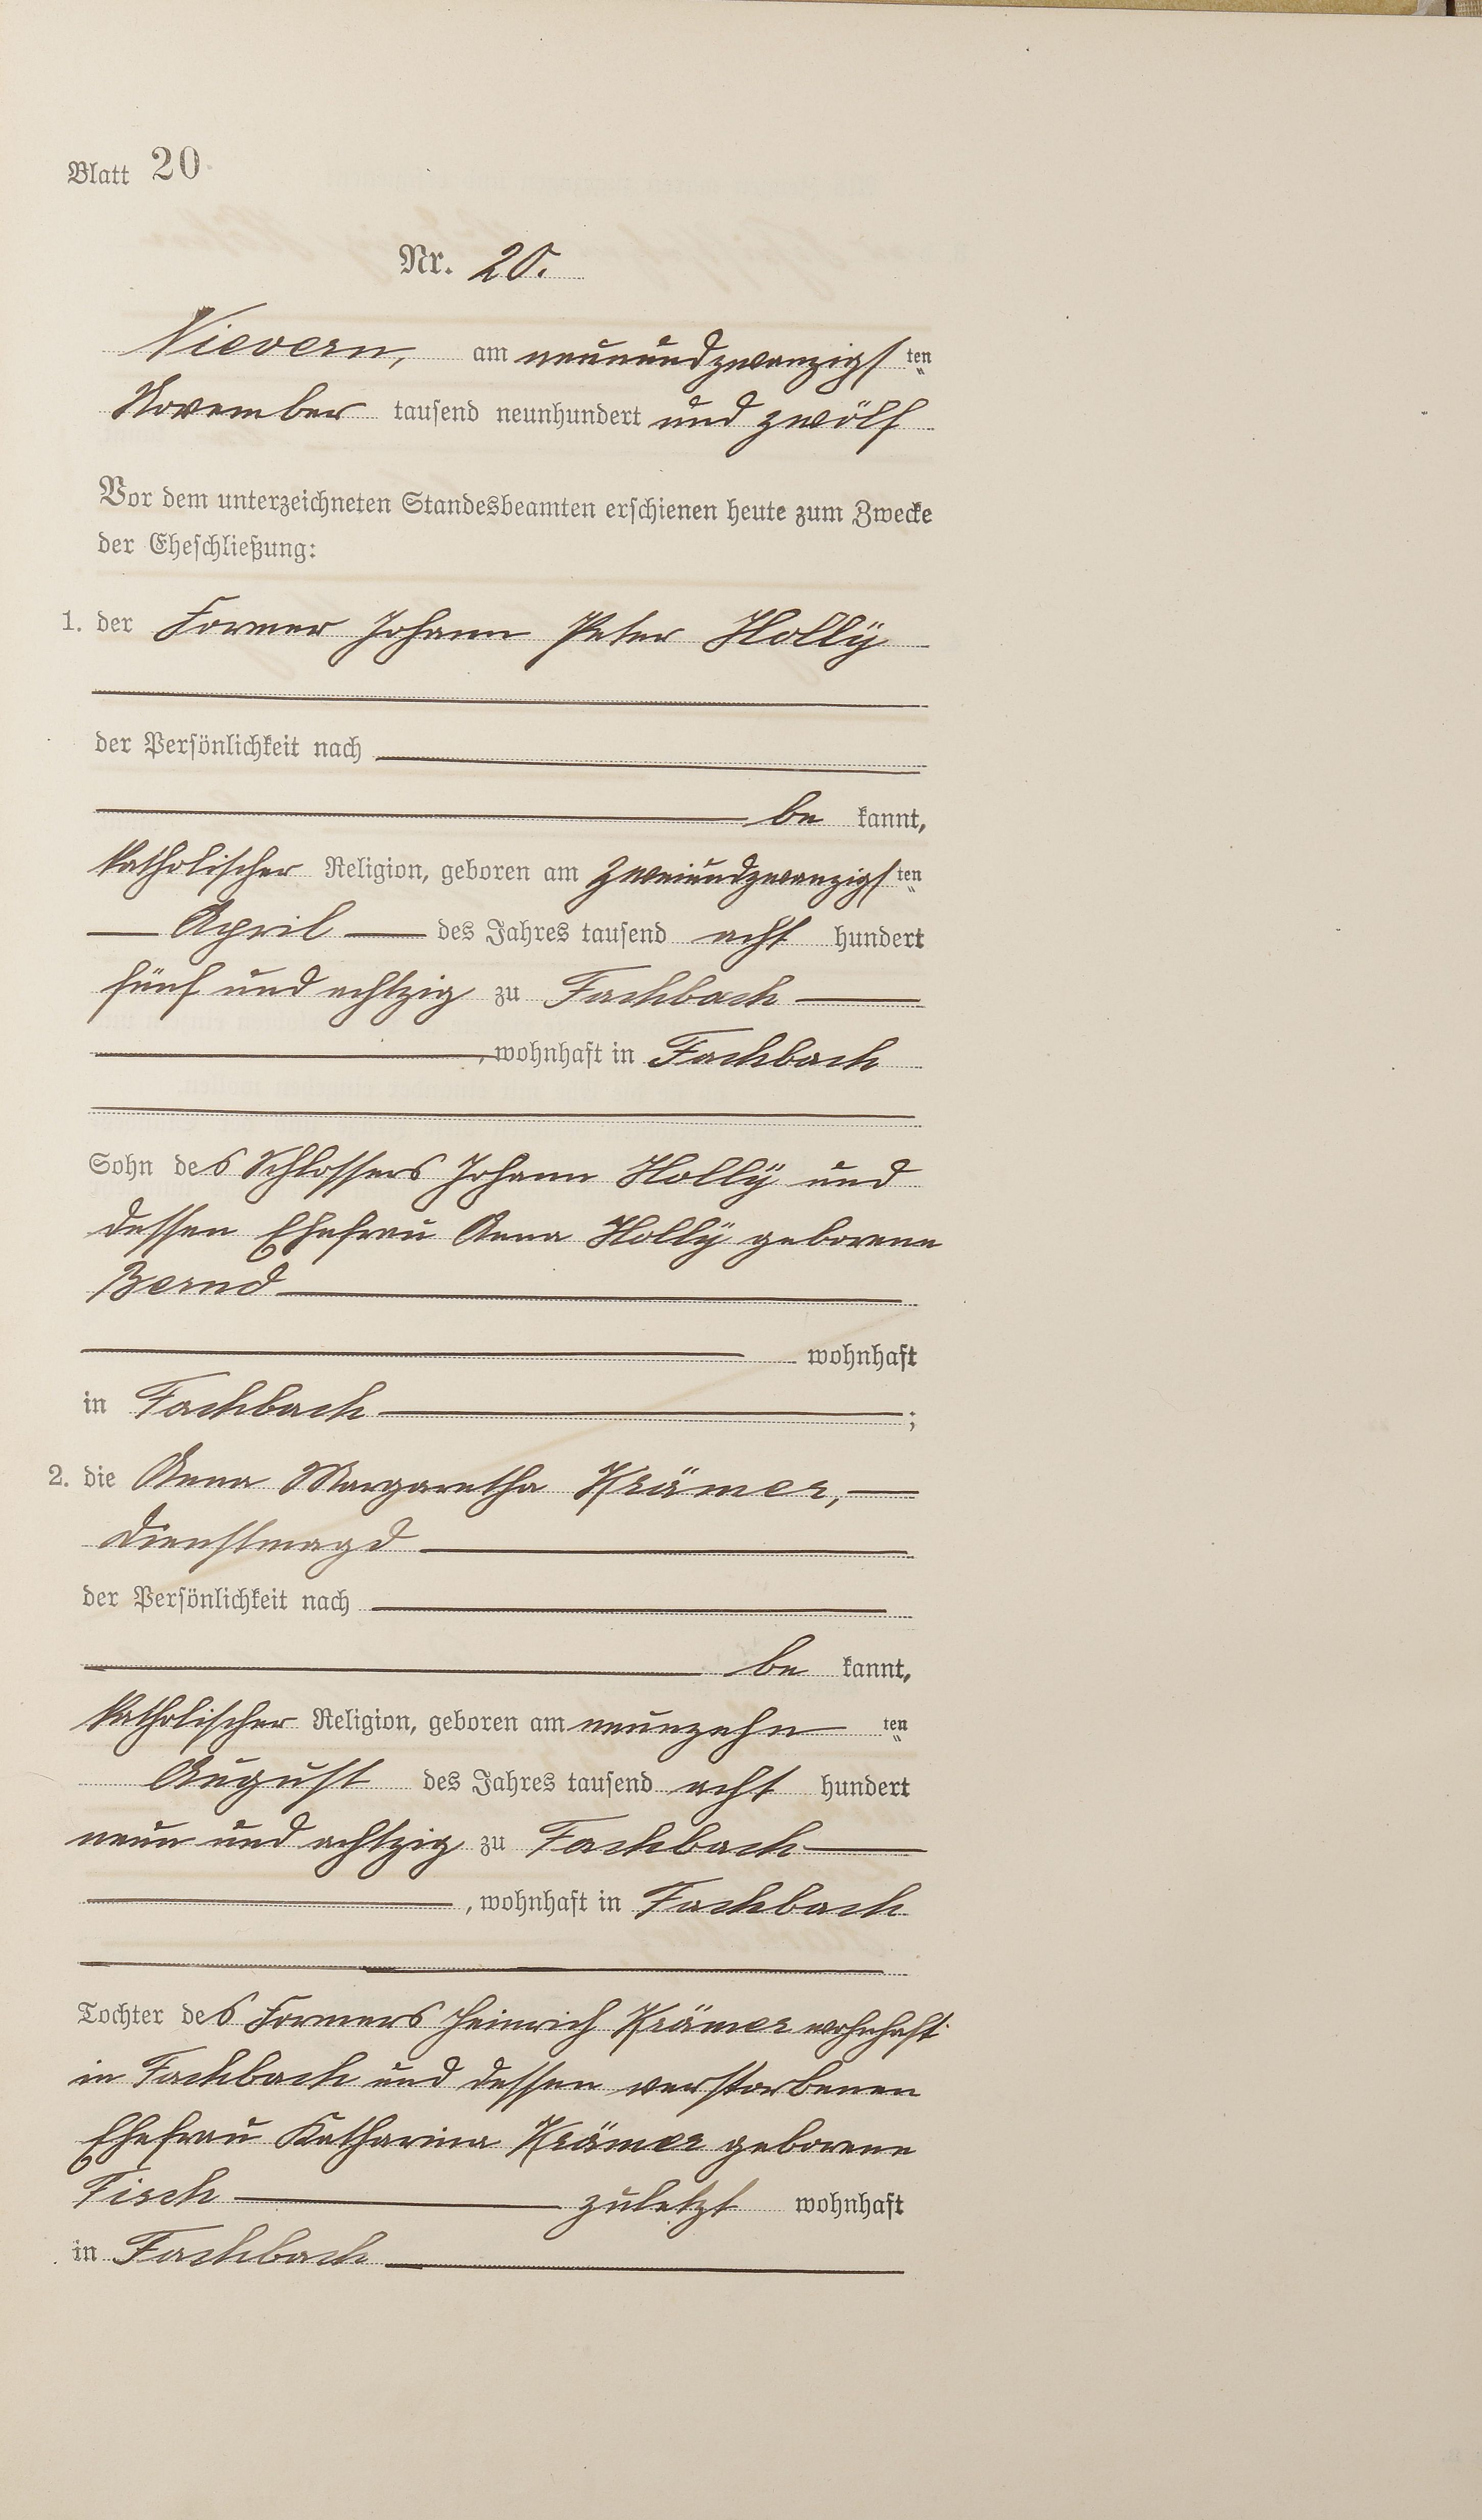 Blatt 20
Nr. 20.
Nievern, am neunundzwanzigsten
November tausend neunhundert und zwölf
Vor dem unterzeichneten Standesbeamten erschienen heute zum Zwecke
der Eheschließung:
1. der Former Johann Peter Holly
der Persönlichkeit nach
be kannt,
katholischer Religion, geboren am zweiundzwanzigsten
April des Jahres tausend acht hundert
fünf und achtzig zu Fachbach
, wohnhaft in Fachbach
Sohn des Schlossers Johann Holly und
dessen Ehefrau Anna Holly geborene
Bernd
wohnhaft
in Fachbach ;
2. die Anna Margaretha Krämer,
Dienstmagd
der Persönlichkeit nach
be kannt,
katholischer Religion, geboren am neunzehn ten
August des Jahres tausend acht hundert
neun und achtzig zu Fachbach
, wohnhaft in Fachbach
Tochter des Formers Heinrich Krämer wohnhaft
in Fachbach und dessen verstorbenen
Ehefrau Katharina Krämer geborene
Fisch zuletzt wohnhaft
in Fachbach